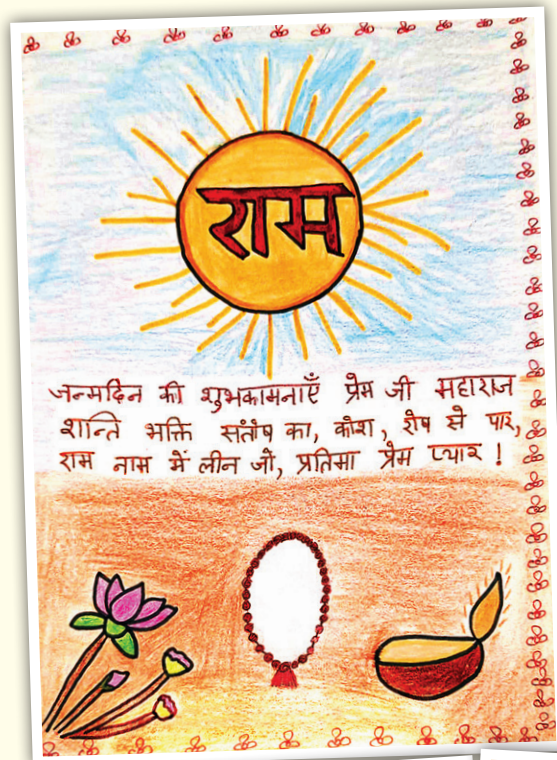 राम
जन्मदिन की शुभकामनाएँ प्रेम जी महाराज
शान्ति भक्ति संतोष का, कोश, रोष से पार,
राम नाम में लीन जो, प्रतिमा प्रेम प्यार !